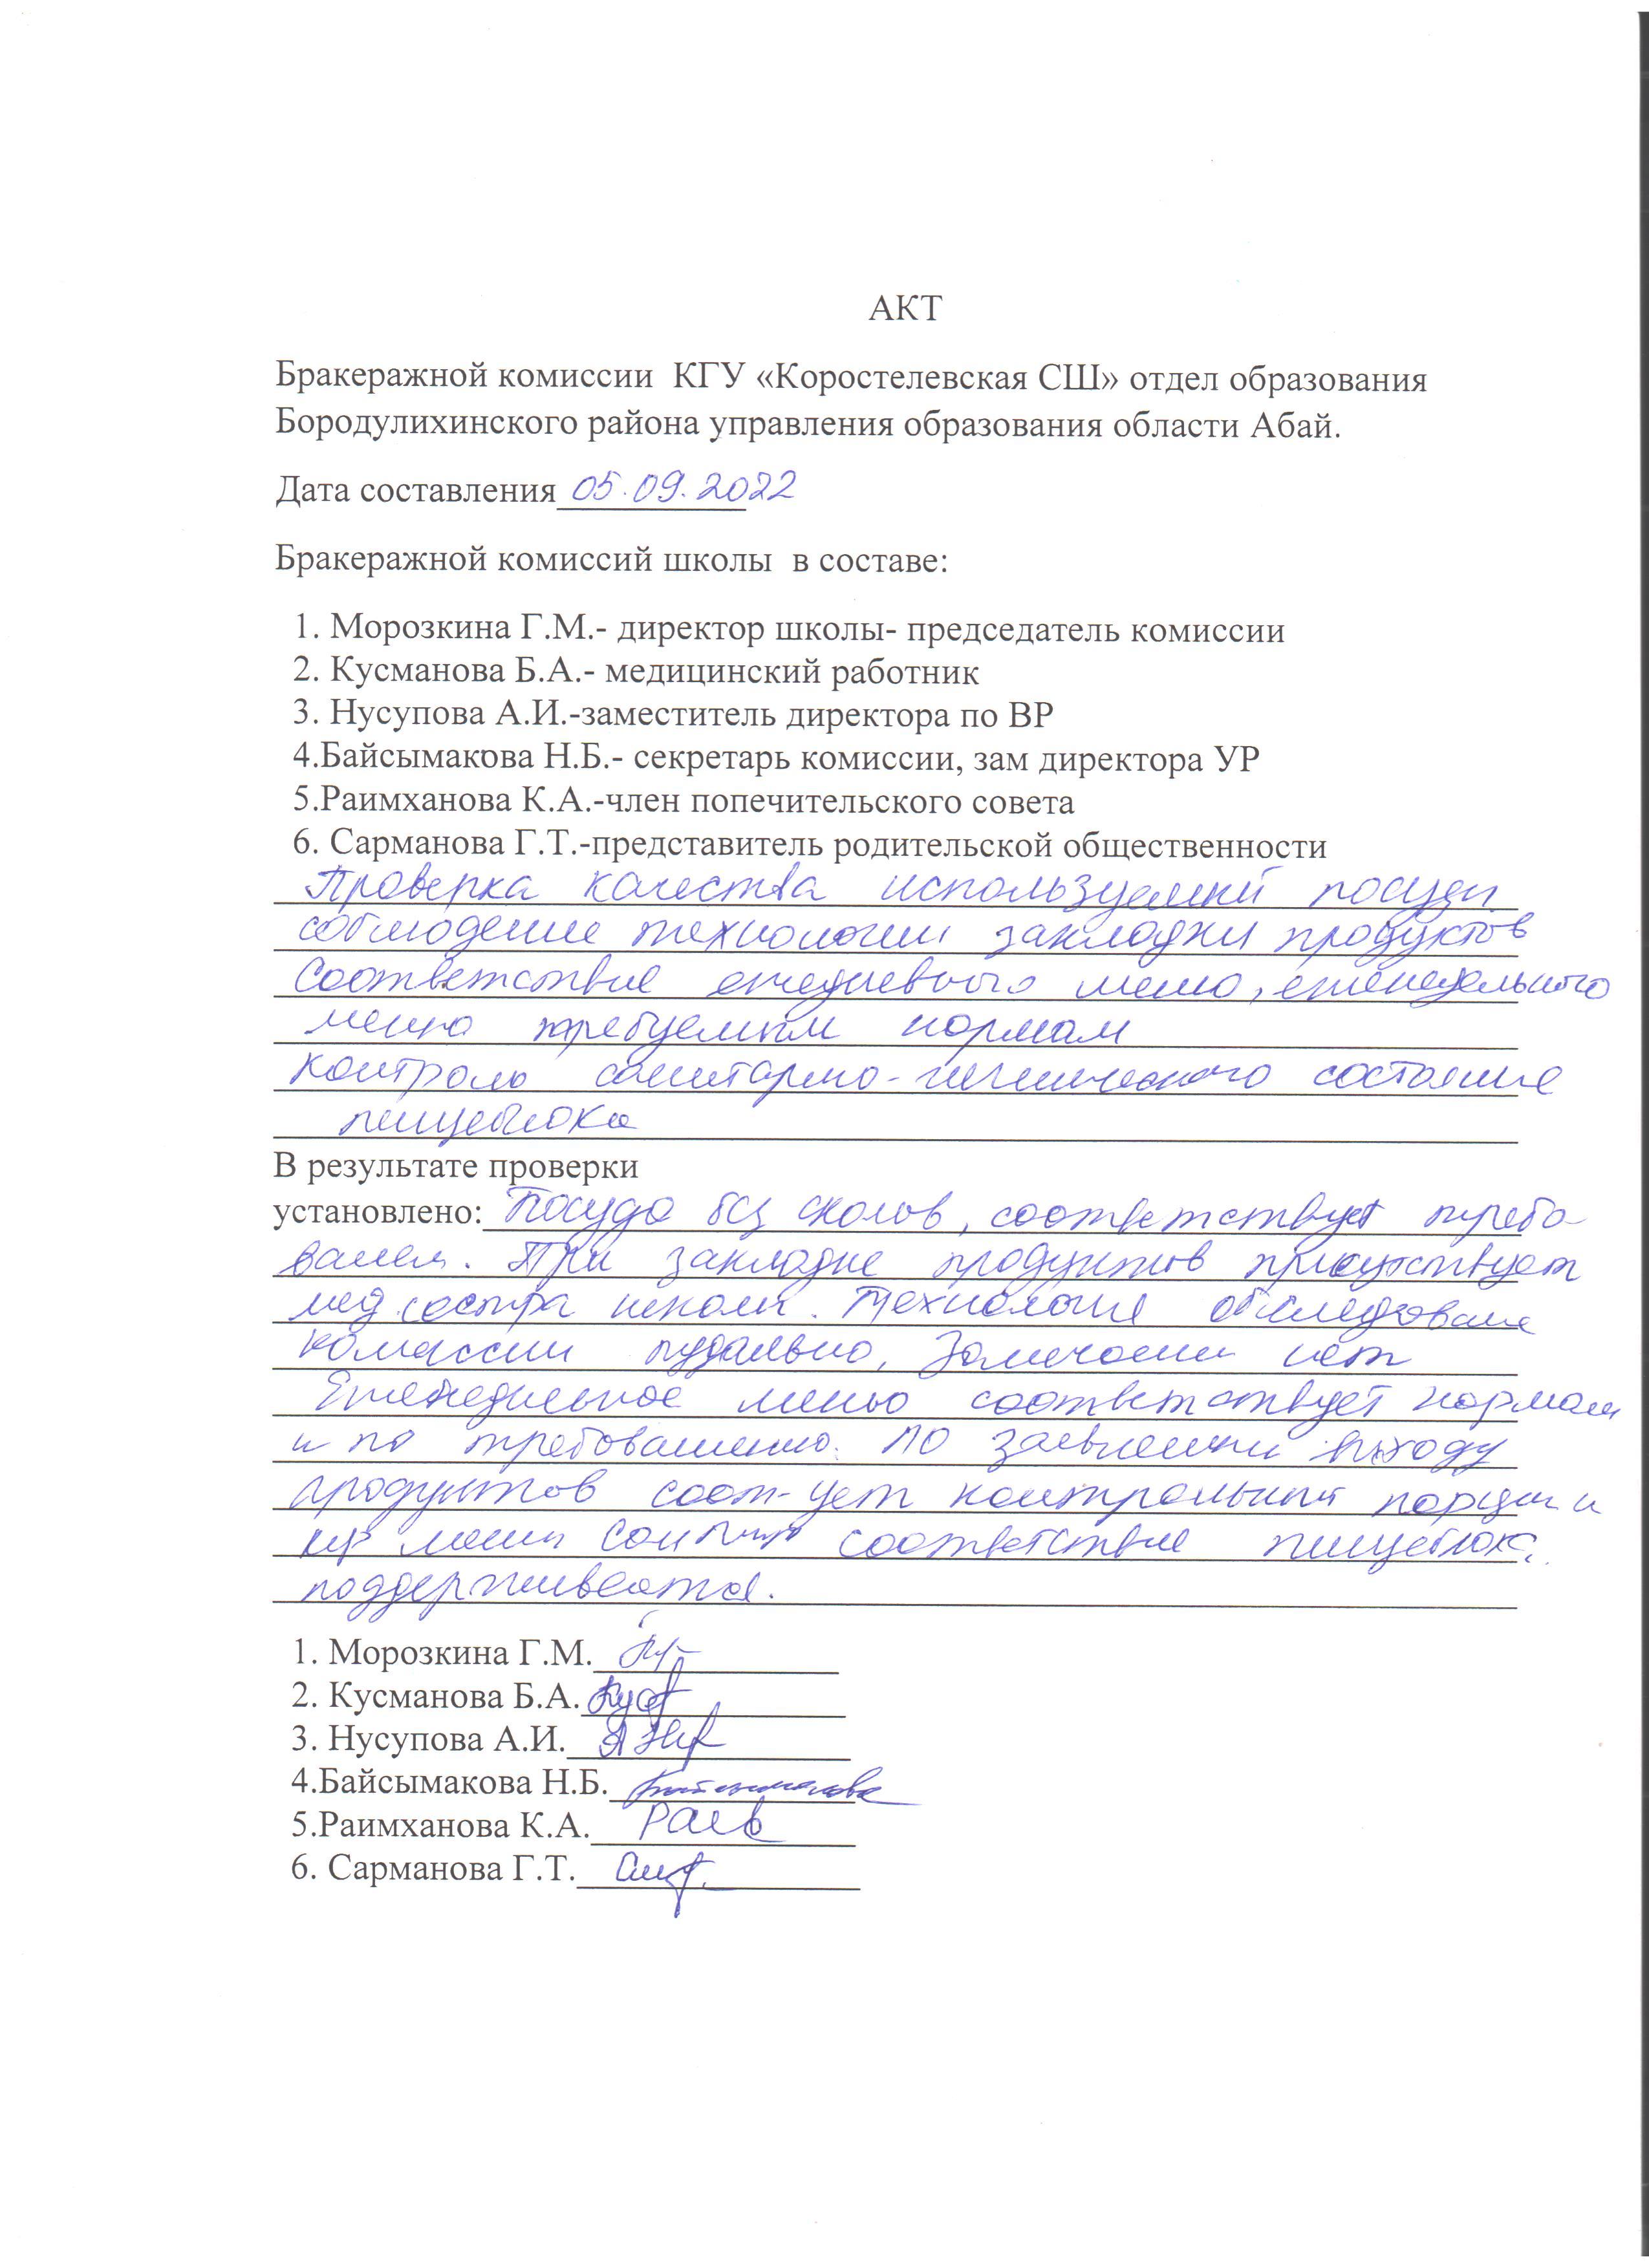 АКТ
Бракеражной комиссии КГУ «Коростелевская СШ» отдел образования
Бородулихинского района управления образования области Абай.
Дата составления 05.09.2022
Бракеражной комиссий школы в составе:
1. Морозкина Г.М.- директор школы- председатель комиссии
2. Кусманова Б.А.- медицинский работник
3. Нусупова А.И.-заместитель директора по ВР
4.Байсымакова Н.Б.- секретарь комиссии, зам директора УР
5.Раимханова К.А.-член попечительского совета
6. Сарманова Г.Т.-представитель родительской общественности
Проверка качества используемый посуды
соблюдение технологии закладки продуктов
Соответствие ежедневного меню, еженедельного
меню требуемым нормам
контроль санитарно-гигиенического состояние
пищеблока
В результате проверки
установлено: Посуда без сколов, соответствует требо-
ваием. При закладке продуктов присутствует
мед.сестра школы. Технология
комиссии Замечаний нет
Ежедневное меню соответствует нормам
и по требованию. По выходу
продуктов соот-ует контрольный порции
соответствие пищеблока
поддерживается.
1. Морозкина Г.М.
2. Кусманова Б.А.
3. Нусупова А.И.
4.Байсымакова Н.Б.
5.Раимханова К.А.
6. Сарманова Г.Т.